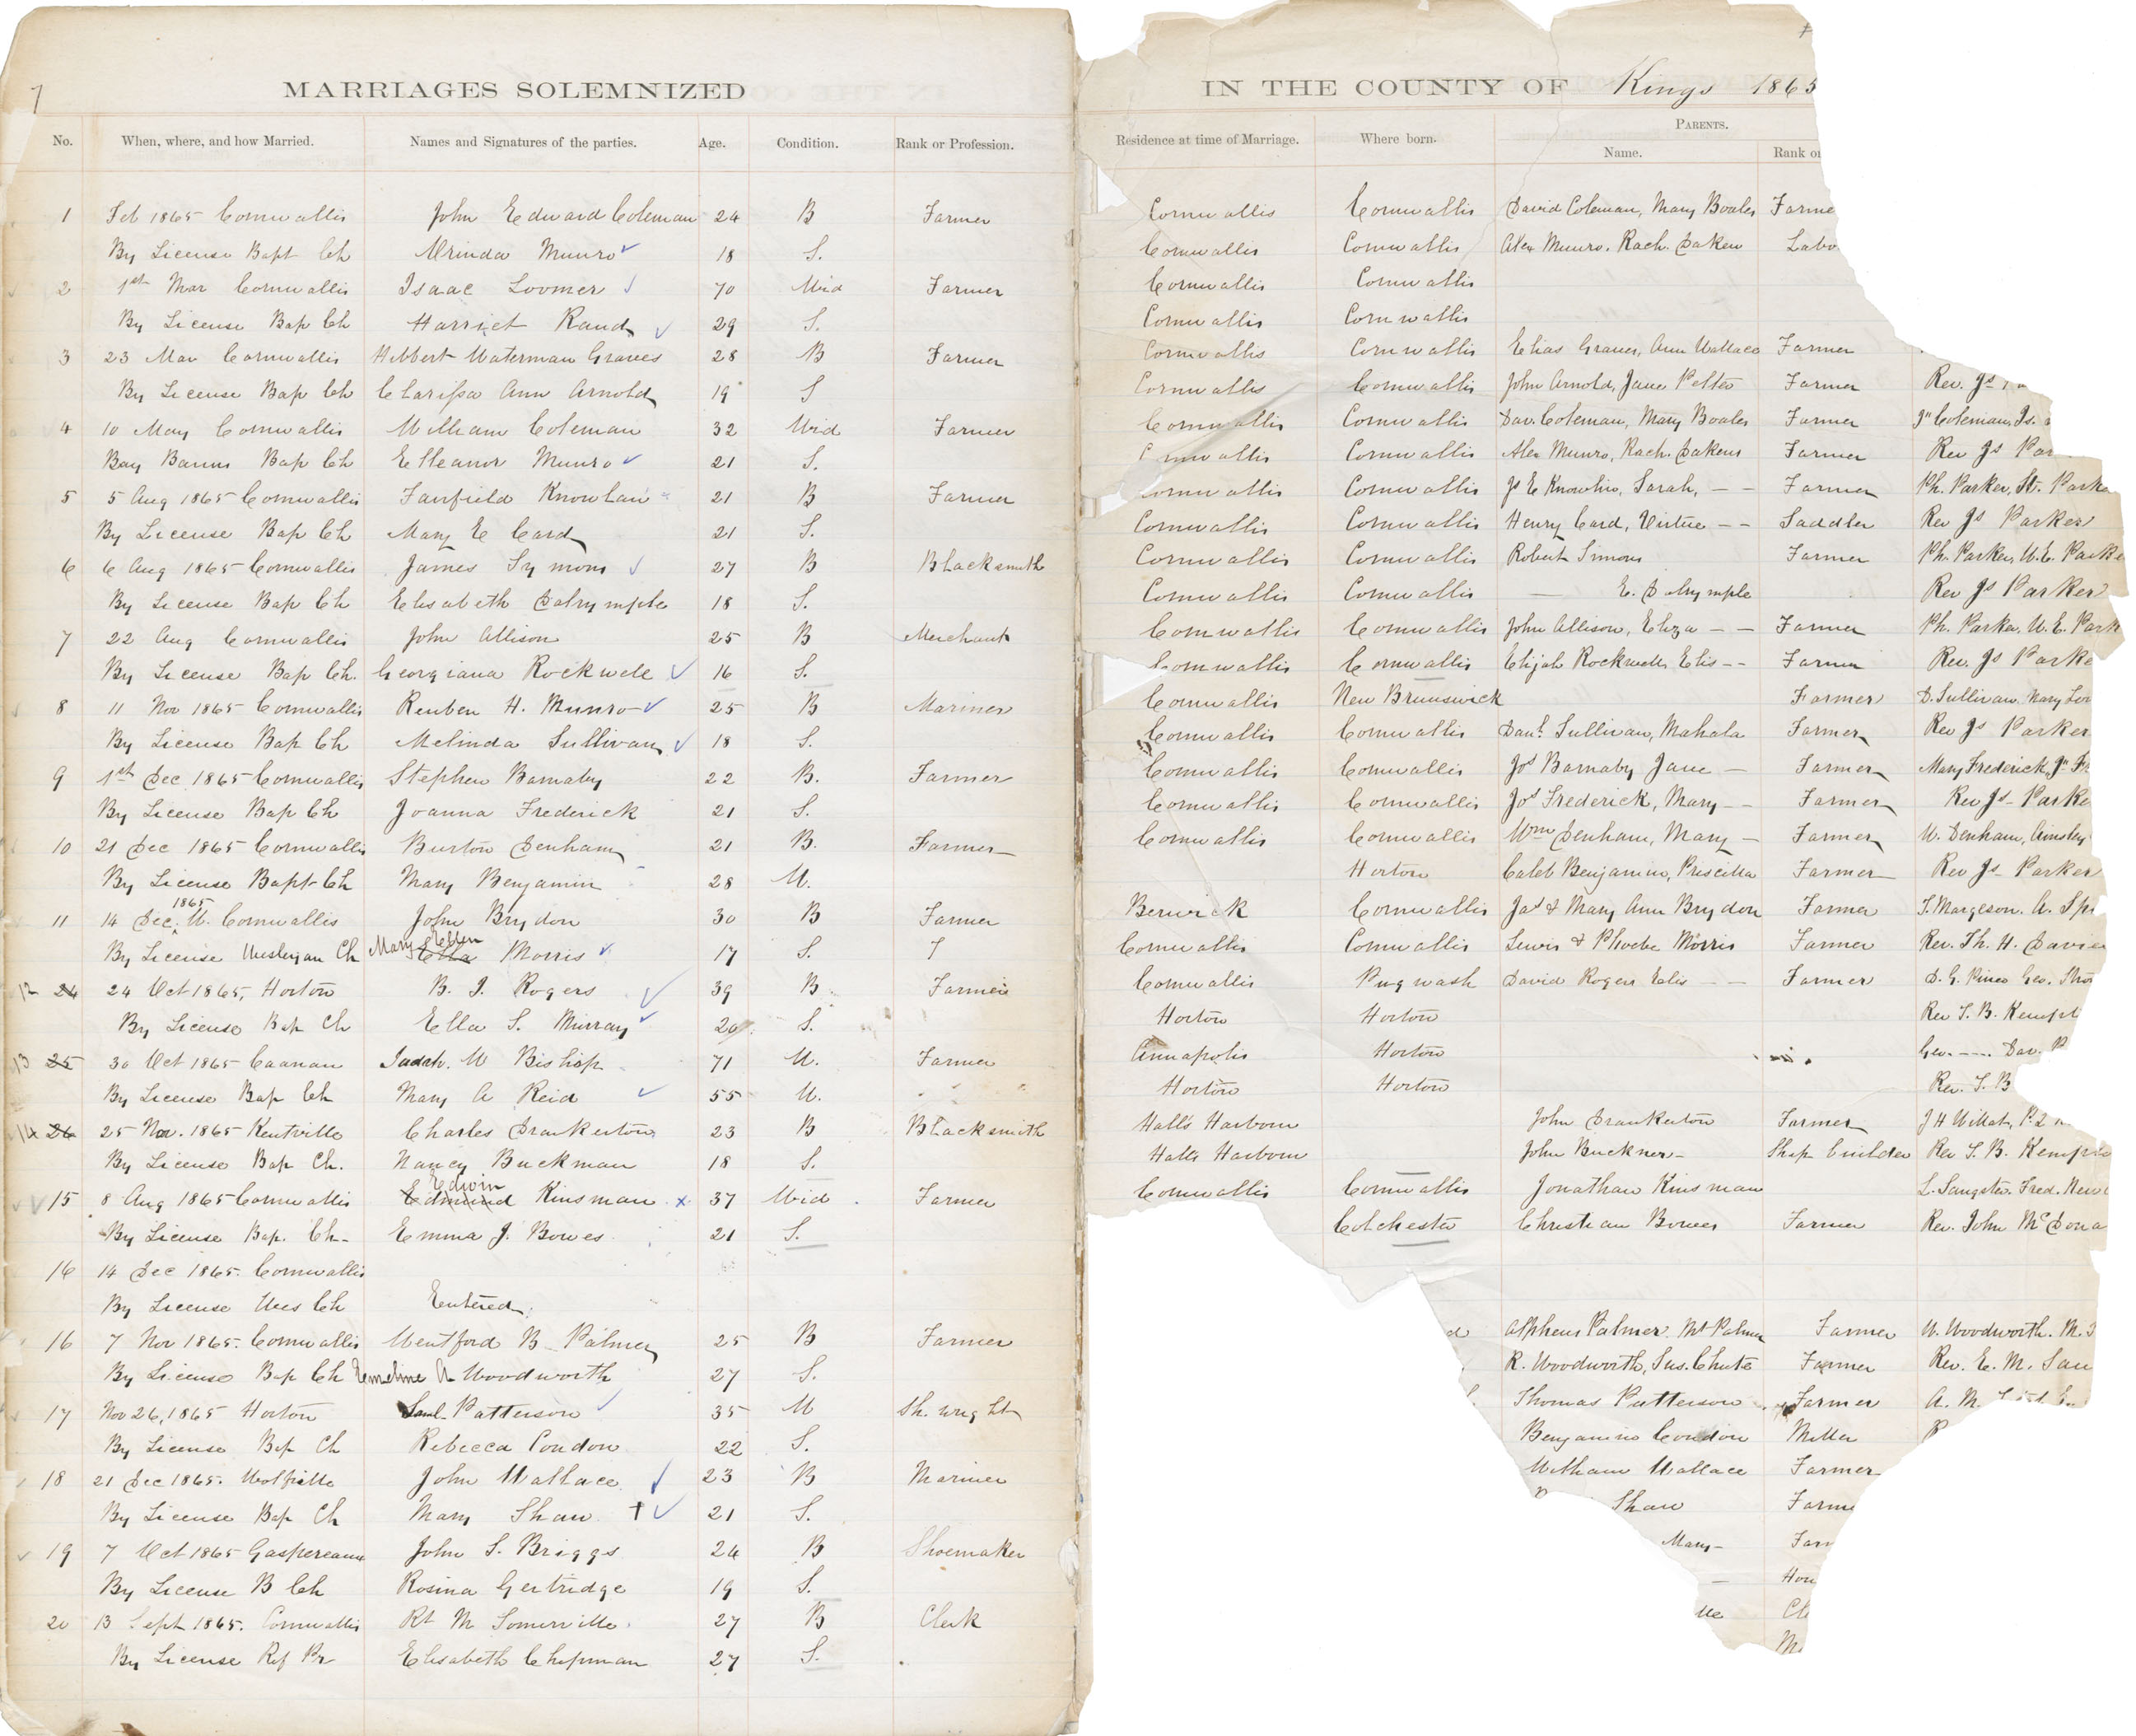 7
MARRIAGES SOLEMNIZED IN THE COUNTY OF Kings 1865
No. When, where, and how Married. Names and Signatures of the parties. Age. Condition. Rank or Profession. Residence at time of Marriage. Where born. PARENTS.
Name. Rank or
1 Feb 1865 Cornwallis John Edward Coleman 24 B Farmer Cornwallis Cornwallis David Coleman, Mary Boales Farme
By License Bapt Ch Orinda Munro 18 S. Cornwallis Cornwallis Alex Munro. Rach. Daken Labo
2 1st Mar Cornwallis Isaac Loomer 70 Wid Farmer Cornwallis Cornwallis
By License Bap Ch Harriet Rand 29 S. Cornwallis Cornwallis
3 23 Mar Cornwallis Hibbert Waterman Graves 28 B Farmer Cornwallis Cornwallis Elias Graves, Ann Wallace Farmer
By License Bap Ch Clarissa Ann Arnold 19 S Cornwallis Cornwallis John Arnold, Jane Pelton Farmer Rev. Js
4 10 May Cornwallis William Coleman 32 Wid Farmer Cornwallis Cornwallis Dav. Coleman, Mary Boales Farmer Jn Coleman, Is.
Bay Banns Bap Ch Elleanor Munro 21 S. Cornwallis Cornwallis Alex Munro, Rach. Dakens Farmer Rev Js Par
5 5 Aug 1865 Cornwallis Fairfield Knowlan 21 B Farmer Cornwallis Cornwallis Js E Knowlin, Sarah, — — Farmer Ph. Parker, St. Parke
By License Bap Ch Mary E Card 21 S. Cornwallis Cornwallis Henry Card, Virtue — — Saddler Rev Js Parker
6 6 Aug 1865 Cornwallis James Symons 27 B Blacksmith Cornwallis Cornwallis Robert Simons Farmer Ph. Parker, W. E. Parke
By License Bap Ch Elisabeth Dalrymple 18 S. Cornwallis Cornwallis — E. Dalrymple Rev Js Parker
7 22 Aug Cornwallis John Allison 25 B Merchant Cornwallis Cornwallis John Allison, Eliza — — Farmer Ph. Parker, W. E. Park
By License Bap Ch. Georgiana Rockwell 16 S. Cornwallis Cornwallis Elijah Rockwell, Elis — — Farmer Rev. Js Parke
8 11 Nov 1865 Cornwallis Reuben H. Munro 25 B Mariner Cornwallis New Brunswick Farmer D. Sullivan, Mary Loo
By License Bap Ch Melinda Sullivan 18 S. Cornwallis Cornwallis Danl. Sullivan, Mahala Farmer Rev Js Parker
9 1st Dec 1865 Cornwallis Stephen Barnaby 22 B. Farmer Cornwallis Cornwallis Jos Barnaby Jane — Farmer Mary Frederick, Jn Fr
By License Bap Ch Joanna Frederick 21 S. Cornwallis Cornwallis Jos Frederick, Mary — — Farmer Rev Js Parke
10 21 Dec 1865 Cornwallis Burton Denham 21 B. Farmer Cornwallis Cornwallis Wm Denham, Mary — Farmer W. Denham, Ainsley
By License Bapt Ch Mary Benjamin 28 W. Horton Caleb Benjamin, Priscilla Farmer Rev Js Parker
1865
11 14 Dec, W. Cornwallis John Brydon 30 B Farmer Berwick Cornwallis Jas & Mary Ann Brydon Farmer T. Margeson. A. Spi
By License Wesleyan Ch Mary Ellen Ella Morris 17 S. 7 Cornwallis Cornwallis Lewis & Phoebe Morris Farmer Rev. Th. H. Davies
12 24 24 Oct 1865, Horton B. J. Rogers 39 B Farmer Cornwallis Pugwash David Rogers Elis — — Farmer D. G. Pineo Geo. Thom
By License Bap Ch Ella S. Murray 20 S. Horton Horton Rev S. B. Kempt
13 25 30 Oct 1865 Caanan Judah. W Bishop 71 W. Farmer Annapolis Horton Geo. — — Dav. P
By License Bap Ch Mary A Reid 55 W. Horton Horton Rev. S. B
14 26 25 Nov. 1865 Kentville Charles Drankerton 23 B Blacksmith Halls Harbour John Drankerton Farmer J H Willat, P.
By License Bap Ch. Nancy Buckman 18 S. Halls Harbour John Buckner Ship builder Rev S. B. Kempto
15 8 Aug 1865 Cornwallis Edwin Edmund Kinsman x 37 Wid Farmer Cornwallis Cornwallis Jonathan Kinsman L. Sangster. Fred. New
By License Bap. Ch. Emma J. Bowes 21 S. Colchester Christian Bowes Farmer Rev. John McDona
16 14 Dec 1865. Cornwallis
By License Wes Ch Entered
16 7 Nov 1865. Cornwallis Wentford B Palmer 25 B Farmer d Alpheus Palmer. Mt Palmer Farmer W. Woodworth. M.
By License Bap Ch Emeline A Woodworth 27 S. R. Woodworth, Sus. Chute Farmer Rev. E. M. Sau
17 Nov 26, 1865 Horton Saml. Patterson 35 W Sh. wright Thomas Patterson Farmer A. M.
By License Bap Ch Rebecca Condon 22 S. Benjamin Condon Miller R
18 21 Dec 1865. Wolfville John Wallace 23 B Mariner William Wallace Farmer
By License Bap Ch Mary Shaw † 21 S. Shaw Farme
19 7 Oct 1865 Gaspereaux John S. Briggs 24 B Shoemaker Mary Farm
By License B Ch Rosina Gertridge 19 S. — Hou
20 13 Sept 1865. Cornwallis Rt M Somerville 27 B Clerk lle Cl
By License Ref Pr Elisabeth Chipman 27 S. M